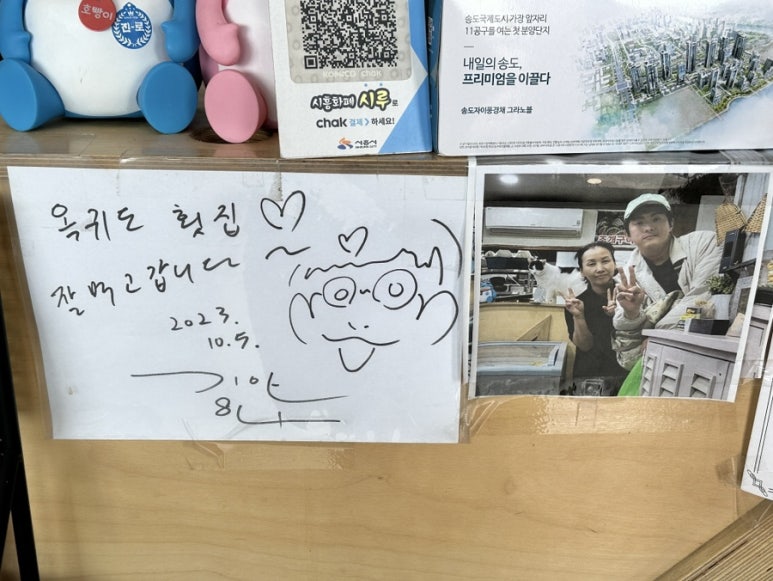 호빵이
진·로
KOMSCO chak
시흥화폐 시루로
chak 결제 하세요!
시흥시
송도국제도시 가장 앞자리
11공구를 여는 첫 분양단지
내일의 송도,
프리미엄을 이끌다
송도자이풍경채 그라노블
옥귀도 횟집
잘 먹고 갑니다
2023.
10.5.